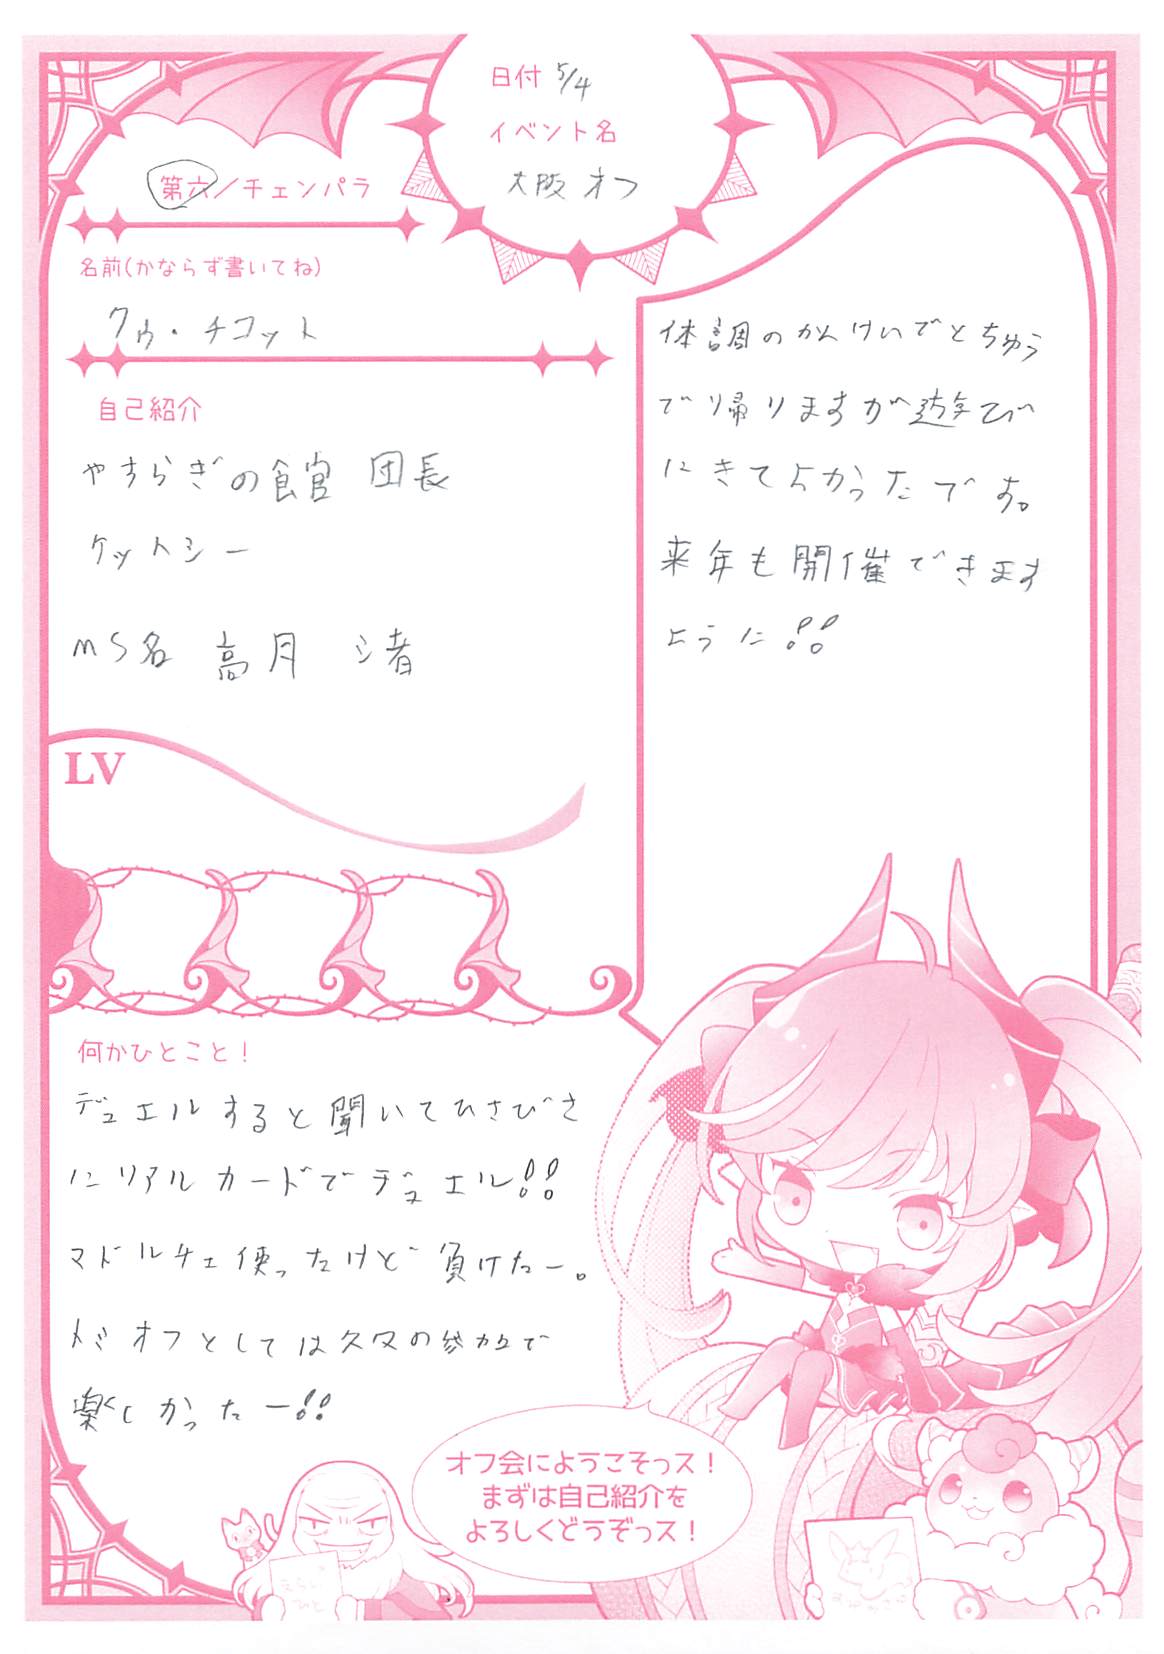 日付 5/4
イベント名
大阪オフ
第六／チェンパラ
名前(かならず書いてね)
クゥ・チコット
自己紹介
やすらぎの食官 団長
ケットシー
MS名 高月 渚
LV
体調のかんけいでとちゅう
で帰りますが遊び
にきてよかったです。
来年も開催できます
ように!!
何かひとこと！
デュエルすると聞いてひさびさ
にリアルカードでデュエル!!
マドルチェ使ったけど負けたー。
トミオフとしては久々の参加で
楽しかったー!!
オフ会にようこそっス！
まずは自己紹介を
よろしくどうぞっス！
えらい
ひと